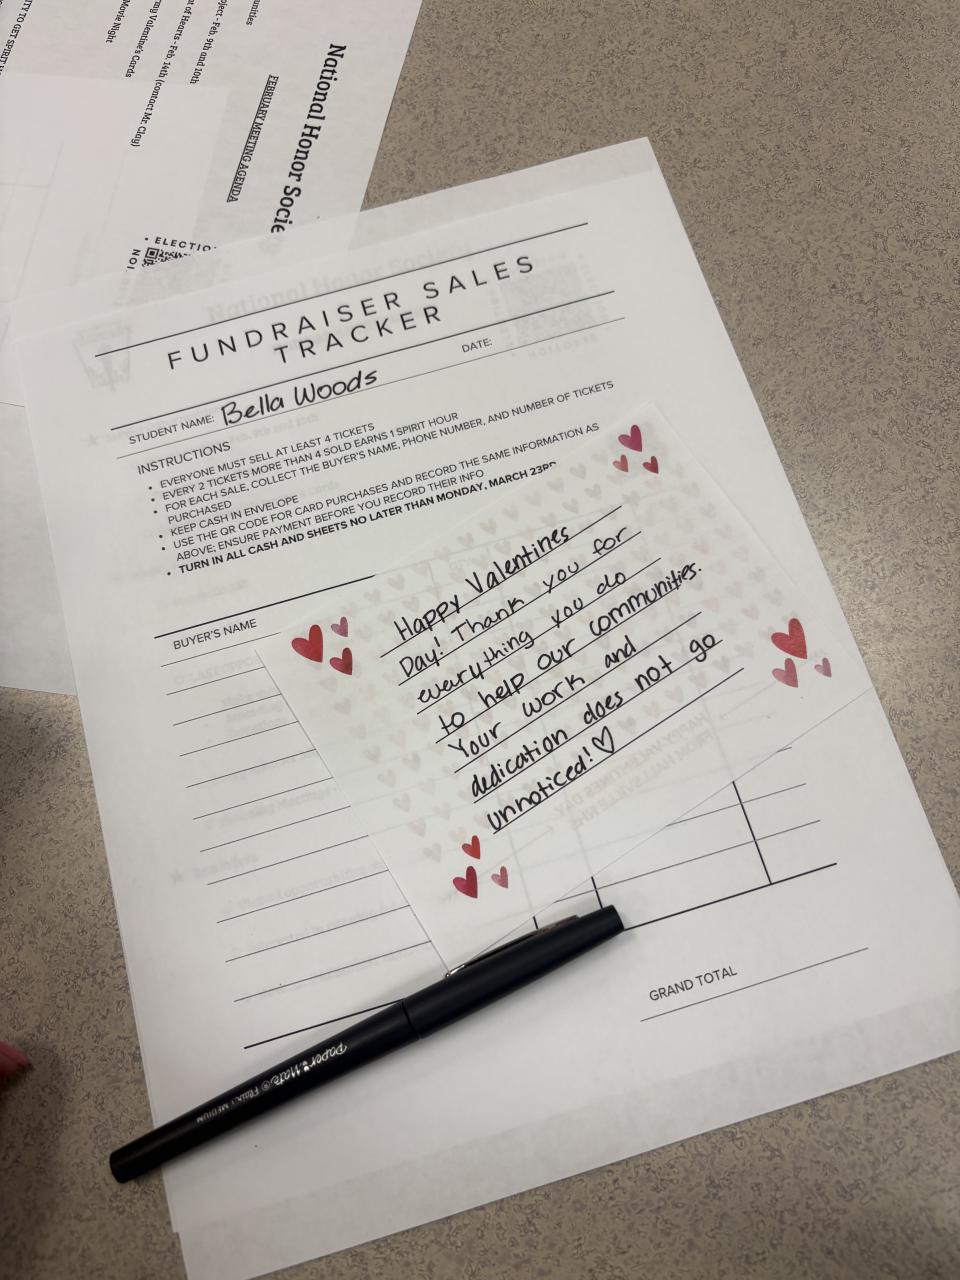 UNITIES
OJECT - Feb. 9th and 10th
of Hearts - Feb. 14th (contact Mr. Clay)
Valentine's Cards
Movie Night
TY TO GET SPIRIT
National Honor Socie
FEBRUARY MEETING AGENDA
• ELECTIO
NOI
National Honor Society
FUNDRAISER SALES
TRACKER
STUDENT NAME: Bella Woods DATE:
INSTRUCTIONS
• EVERYONE MUST SELL AT LEAST 4 TICKETS
• EVERY 2 TICKETS MORE THAN 4 SOLD EARNS 1 SPIRIT HOUR
• FOR EACH SALE, COLLECT THE BUYER'S NAME, PHONE NUMBER, AND NUMBER OF TICKETS
PURCHASED
• KEEP CASH IN ENVELOPE
• USE THE QR CODE FOR CARD PURCHASES AND RECORD THE SAME INFORMATION AS
ABOVE; ENSURE PAYMENT BEFORE YOU RECORD THEIR INFO
• TURN IN ALL CASH AND SHEETS NO LATER THAN MONDAY, MARCH 23RD
BUYER'S NAME
Happy Valentines
Day! Thank you for
everything you do
to help our communities.
Your work and
dedication does not go
unnoticed!♡
HAPPY VALENTINES DAY
FROM HALLSVILLE NHS
GRAND TOTAL
Paper Mate® Flair! MEDIUM